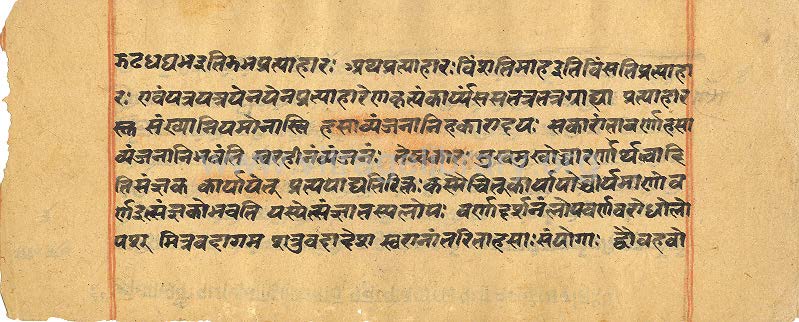 झढधघभइतिझभप्रत्याहारः अथप्रत्याहारःविंशतिमाहइतिविंसतिप्रत्याहा
रः एवंयत्रयत्रयेनयेनप्रत्याहारेणकृत्यंकार्य्यंससतत्रतत्रग्राह्या प्रत्याहार
संख्यानियमोनास्ति हसाव्यंजनानिहकारादयः सकारांतावर्णाहसा
व्यंजनानिभवंति स्वरहीनंव्यंजनं तेष्वकारः मुखमुखोच्चारणार्थत्वादि
तिसंज्ञक कार्यायेत् प्रत्ययाद्यतिरिक्तः कस्मैचित्कार्यायोच्चार्यमाणोव
र्णइत्संज्ञकोभवति यस्येत्संज्ञातस्यलोपः वर्णादर्शनंलोपवर्णवरोधोलो
पश् मित्रवदागम शत्रुवदादेश स्वरानंतरिताहसाःसंयोगाः द्वौवहवो